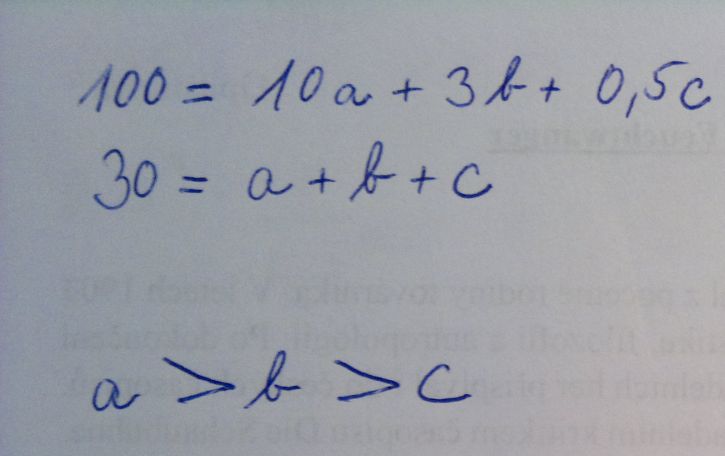 100 = 10a + 3b + 0,5c
30 = a + b + c
a > b > c